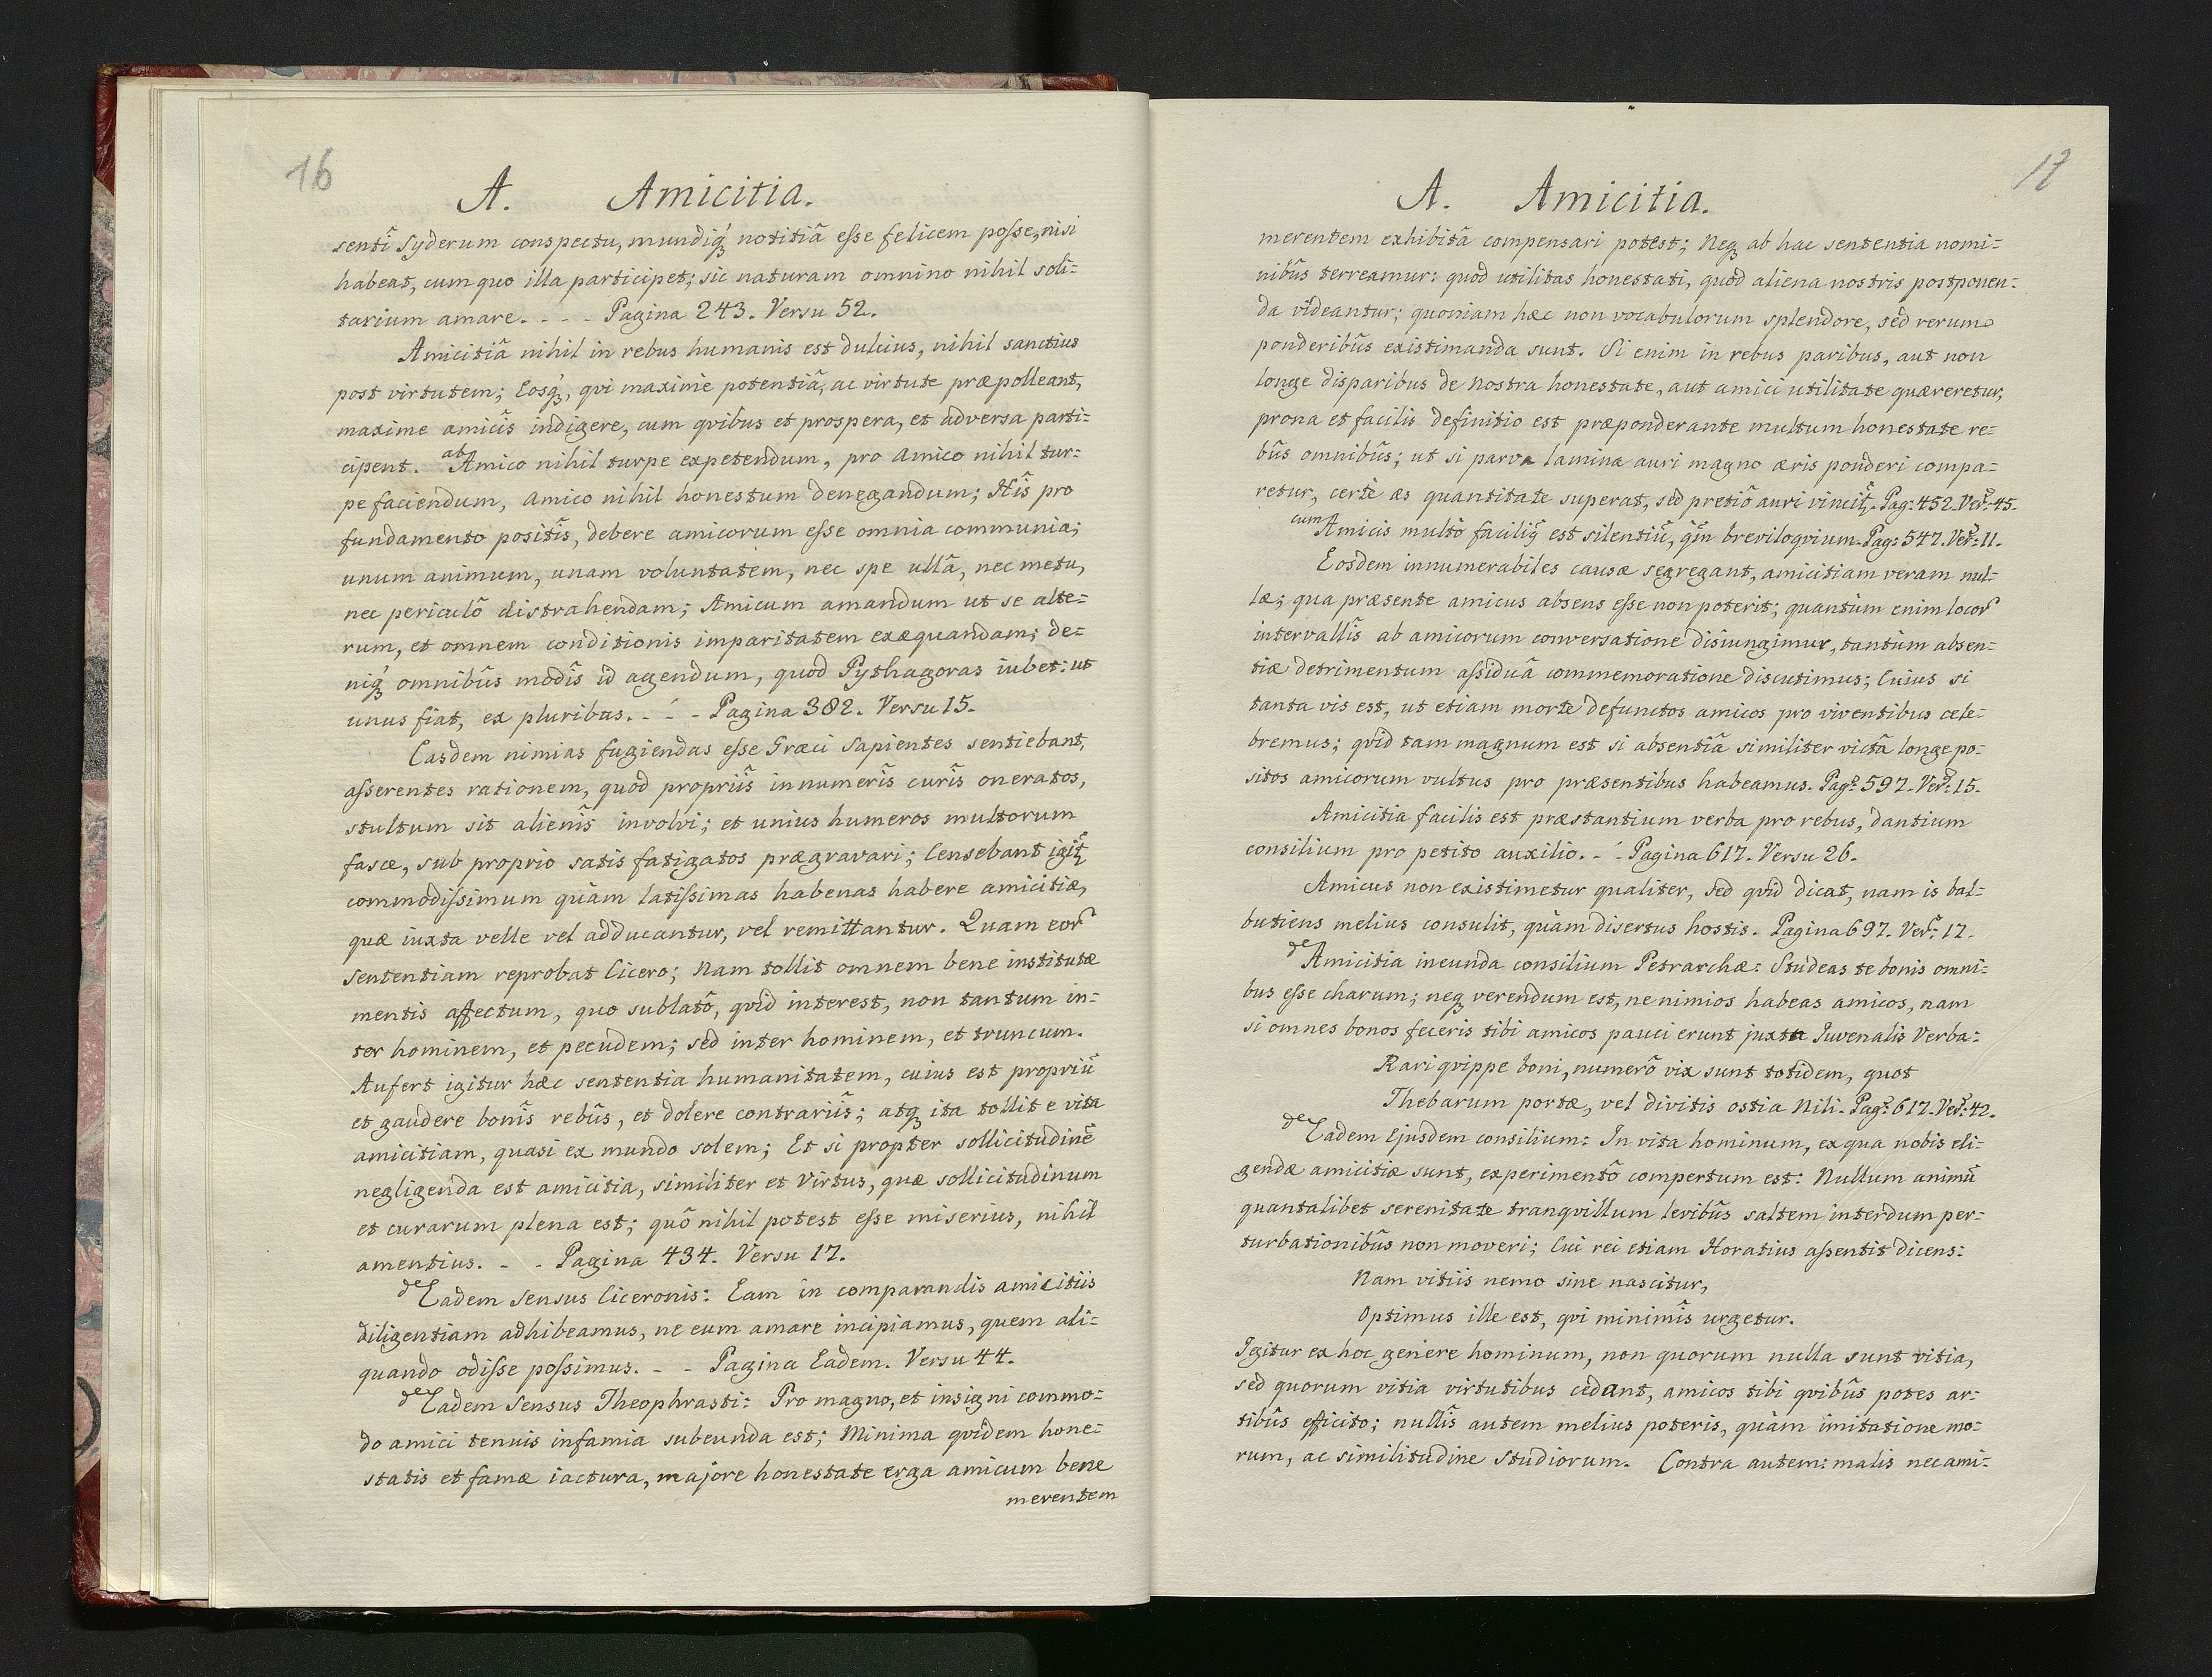 16
A. Amicitia.
senti Syderum conspectu, mundiq́ꝫ notitiâ esse felicem posse, nisi
habeat, cum quo illa participet; sic naturam omnino nihil soli-
tarium amare. - - - Pagina 243. Versu 52.
Amicitiâ nihil in rebus humanis est dulcius, nihil sanctius
post virtutem; Eosq́ꝫ, qvi maxime potentiâ, ac virtute præpolleant,
maxime amicîs indigere, cum qvibus et prospera, et adversa parti-
cipent. ab Amico nihil turpe expetendum, pro Amico nihil tur-
pe faciendum, Amico nihil honestum denegandum; Hîs pro
fundamento positîs, debere amicorum esse omnia communia;
unum animum, unam voluntatem, nec spe ullâ, nec metu,
nec periculô distrahendam; Amicum amandum ut se alte-
rum, et omnem conditionis imparitatem exæquandam; de-
niq́ꝫ omnibûs modîs id agendum, quod Pythagoras iubet: ut
unus fiat, ex pluribus. - - - Pagina 382. Versu 15.
Easdem nimias fugiendas esse Græci Sapientes sentiebant,
asserentes rationem, quod propriîs innumerîs curîs oneratos,
stultum sit alienîs involvi; et unius humeros multorum
fasce, sub proprio satis fatigatos prægravari; Censebant igit̃
commodissimum quàm latissimas habenas habere amicitiæ,
quæ iuxta velle vel adducantur, vel remittantur. Quam eor̃
Sententiam reprobat Cicero; Nam tollit omnem bene institutæ
mentis affectum, quo sublatô, qvid interest, non tantum in-
ter hominem, et pecudem; sed inter hominem, et truncum.
Aufert igitur hæc sententia humanitatem, cuius est propriũ
et gaudere bonîs rebûs, et dolere contrariîs; atqꝫ ita tollit e vita
amicitiam, quasi ex mundo solem; Et si propter sollicitudinẽ
negligenda est amicitia, similiter et Virtus, quæ sollicitudinum
et curarum plena est; quô nihil potest esse miserius, nihil
amentius. - - Pagina 434. Versu 17.
de Eadem Sensus Ciceronis: Eam in comparandis amicitiis
diligentiam adhibeamus, ne eum amare incipiamus, quem ali-
quando odisse possimus. - - Pagina Eadem. Versu 44.
de Eadem Sensus Theophrasti: Pro magno, et insigni commo-
do amici tenuis infamia subeunda est; Minima qvidem hone-
statis et famæ iactura, majore honestate erga amicum bene
merentem
17
A. Amicitia.
merentem exhibitâ compensari potest; Neqꝫ ab hac sententia nomi-
nibûs terreamur: quod utilitas honestati, quod aliena nostris postponen-
da videantur; quoniam hæc non vocabulorum splendore, sed rerum
ponderibûs existimanda sunt. Si enim in rebus paribus, aut non
longe disparibus de nostra honestate, aut amici utilitate quæreretur,
prona et facilis definitio est præponderante multum honestate re-
bûs omnibûs; ut si parva lamina auri magno æris ponderi compa-
retur, certè æs quantitate superat, sed pretiô auri vincit̃. Pag: 452. Verš: 45.
cum Amicis multò faciliq̃ est silentiũ, q̃m breviloqvium. Pag: 547. Verš: 11.
Eosdem innumerabiles causæ segregant, amicitiam veram nul-
læ; qua præsente amicus absens esse non poterit; quantùm enim locor̃
intervallîs ab amicorum conversatione disiungimur, tantùm absen-
tiæ detrimentum assiduâ commemoratione discutimus; Cuius si
tanta vis est, ut etiam morte defunctos amicos pro viventibus cele-
bremus; qvid tam magnum est si absentiâ similiter victâ longe po-
sitos amicorum vultus pro præsentibus habeamus. Pag: 597. Verš: 15.
Amicitia facilis est præstantium verba pro rebus, dantium
consilium pro petito auxilio. - - Pagina 617. Versu 26.
Amicus non existimetur qualiter, sed qvid dicat, nam is bal-
butiens melius consulit, quàm disertus hostis. Pagina 697. Verš: 17.
de Amicitia ineunda consilium Petrarchæ: Studeas te bonis omni-
bus esse charum; neqꝫ verendum est, ne nimios habeas amicos, nam
si omnes bonos feceris tibi amicos pauci erunt juxta Juvenalis Verba:
Rari qvippe boni, numerô vix sunt totidem, quot
Thebarum portæ, vel divitis ostia Nili. Pag: 617. Verš: 42.
de Eadem Ejusdem consilium: In vita hominum, ex qua nobis eli-
gendæ amicitiæ sunt, experimentô compertum est: Nullum animũ
quantalibet serenitate tranqvillum levibûs saltem interdum per-
turbationibûs non moveri; Cui rei etiam Horatius assentit dicens:
Nam vitiis nemo sine nascitur,
Optimus ille est, qvi minimîs urgetur.
Igitur ex hoc genere hominum, non quorum nulla sunt vitia,
sed quorum vitia virtutibus cedant, amicos tibi qvibûs potes ar-
tibûs efficito; nullîs autem melius poteris, quàm imitatione mo-
rum, ac similitudine Studiorum. Contra autem: malis nec ami-